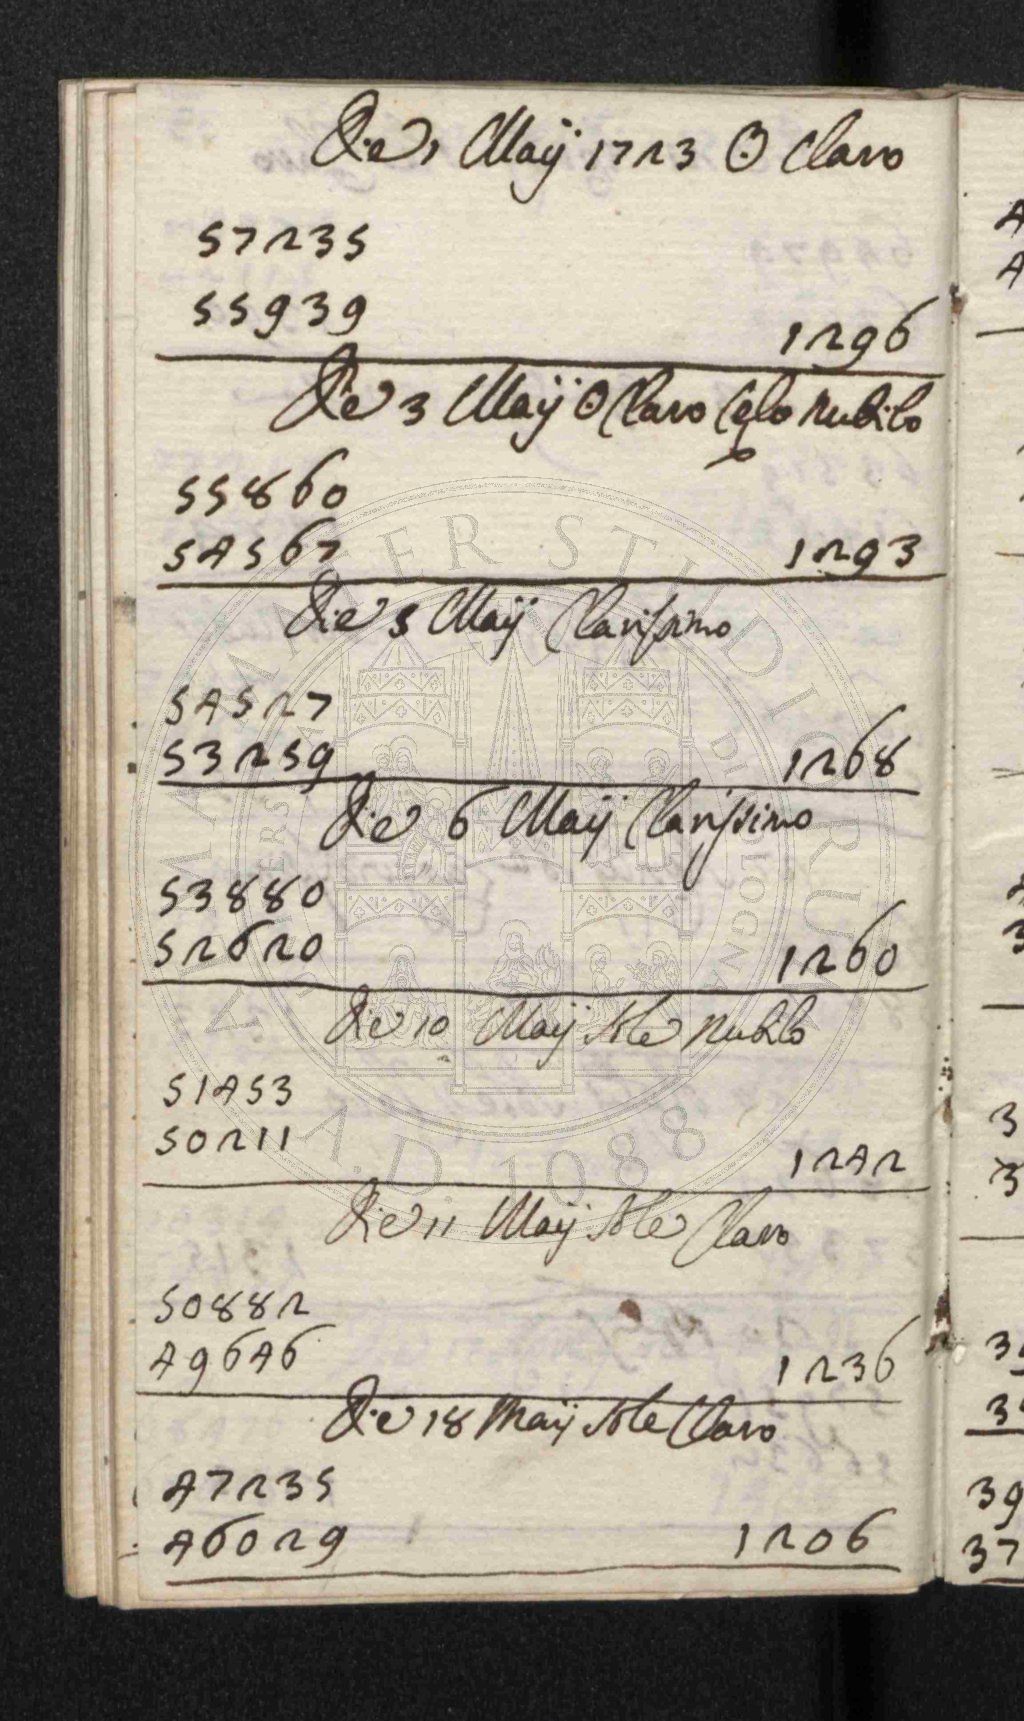 Die 1 Maij 1723 ☉ Claro
57235
55939 1296
Die 3 Maij ☉ Claro Cęlo nubilo
55860
54567 1293
Die 5 Maij Clarissimo
54527
53259 1268
Die 6 Maij Clarissimo
53880
52620 1260
Die 10 Maij Sole nubilo
51453
50211 1242
Die 11 Maij Sole Claro
50882
49646 1236
Die 18 Maij Sole Claro
47235
46029 1206
ALMA MATER STUDIORUM
A.D. 1088